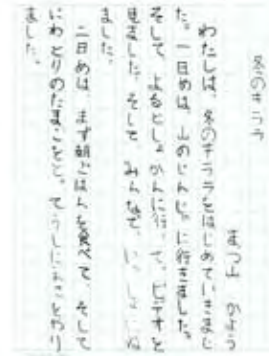 冬のキララ
まつ山 かよう
わたしは、冬のキララをはじめていきまし
た。一日めは、山のじんじゃに行きました。
そして よるとしょかんに行って、ビデオを
見ました。そして みんなで、いっしょにね
ました。
二日めは、まず朝ごはんを食べて、そして
にわとりのたまごをとって
ました。